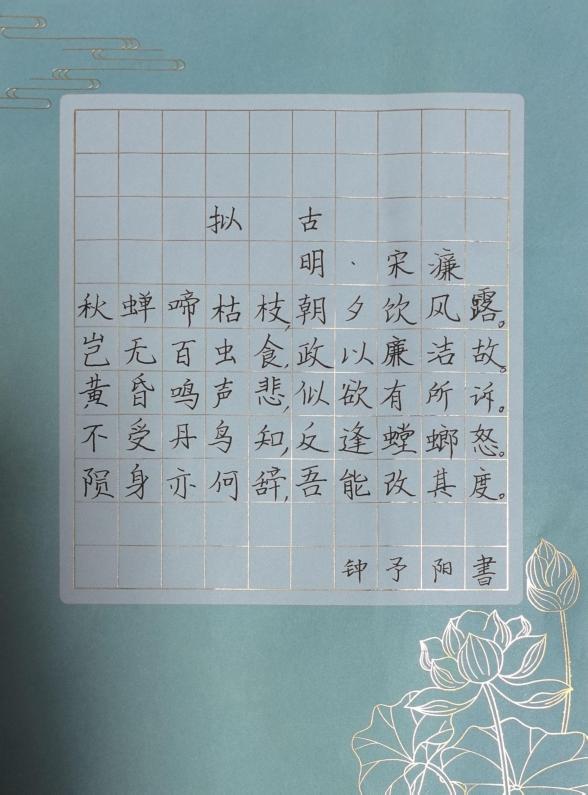 拟古
明·宋濂
秋蝉啼枯枝,朝夕饮风露。
岂无百虫食,政以廉洁故。
黄昏鸣声悲,似欲有所诉。
不受丹鸟知,反逢螳螂怒。
陨身亦何辞,吾能改其度。
钟予阳書